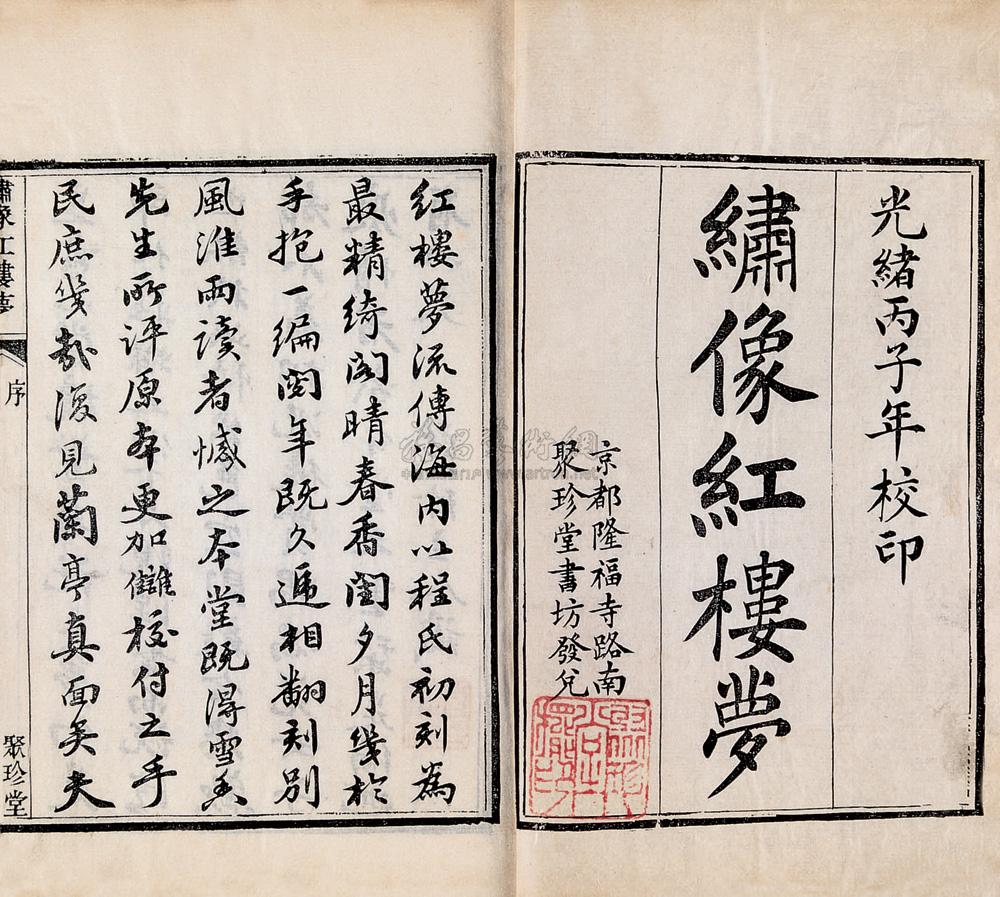 光緒丙子年校印
繡像紅樓夢
京都隆福寺路南
聚珍堂書坊發兌
紅樓夢流傳海內以程氏初刻為
最精綺閣晴春香閨夕月幾於
手抱一編閱年既久遞相翻刻別
風淮雨讀者憾之本堂既得雪香
先生所評原本更加讎校付之手
民庶幾哉復見蘭亭真面矣夫
繡像紅樓夢
序
聚珍堂